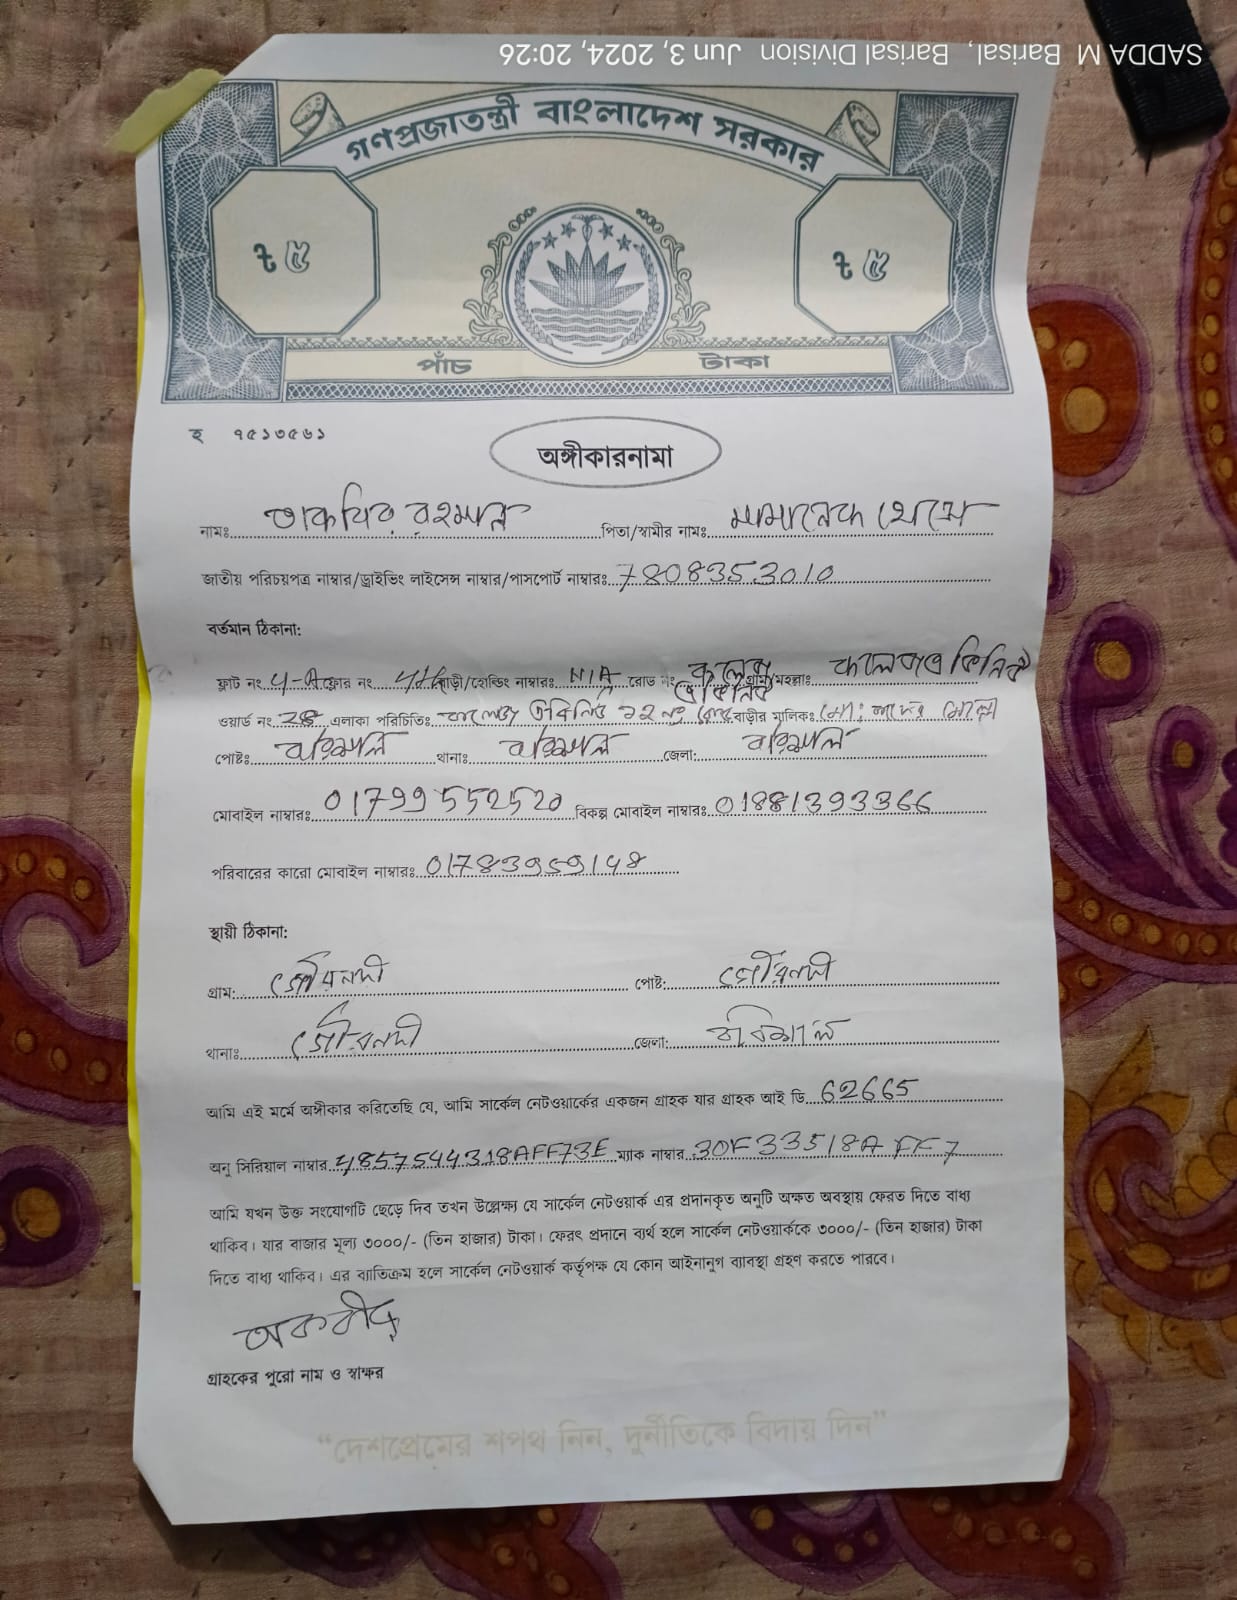 SADDA M Barisal, Barisal Division Jun 3, 2024, 20:26
গণপ্রজাতন্ত্রী বাংলাদেশ সরকার
৳ ৫ ৳ ৫
পাঁচ টাকা
হ ৭৫১৩৫৬১
অঙ্গীকারনামা
নামঃ রহমান পিতা/স্বামীর নামঃ
জাতীয় পরিচয়পত্র নাম্বার/ড্রাইভিং লাইসেন্স নাম্বার/পাসপোর্ট নাম্বারঃ 7808353010
বর্তমান ঠিকানা:
ফ্লাট নং 4-A ফ্লোর নং বাড়ী/হোল্ডিং নাম্বারঃ N/A রোড নং কলেজ গ্রাম/মহল্লাঃ
ওয়ার্ড নং এলাকা পরিচিতিঃ কলেজ বাড়ীর মালিকঃ মো:
পোষ্টঃ বরিশাল থানাঃ বরিশাল জেলা: বরিশাল
মোবাইল নাম্বারঃ 01799552520 বিকল্প মোবাইল নাম্বারঃ 01881393366
পরিবারের কারো মোবাইল নাম্বারঃ 01783959148
স্থায়ী ঠিকানা:
গ্রাম: গৌরনদী পোষ্ট: গৌরনদী
থানাঃ গৌরনদী জেলা: বরিশাল
আমি এই মর্মে অঙ্গীকার করিতেছি যে, আমি সার্কেল নেটওয়ার্কের একজন গ্রাহক যার গ্রাহক আই ডি 62665
অনু সিরিয়াল নাম্বার 4857544318AFF73E ম্যাক নাম্বার 30F33518AFF7
আমি যখন উক্ত সংযোগটি ছেড়ে দিব তখন উল্লেক্ষ্য যে সার্কেল নেটওয়ার্ক এর প্রদানকৃত অনুটি অক্ষত অবস্থায় ফেরত দিতে বাধ্য
থাকিব। যার বাজার মূল্য ৩০০০/- (তিন হাজার) টাকা। ফেরৎ প্রদানে ব্যর্থ হলে সার্কেল নেটওয়ার্ককে ৩০০০/- (তিন হাজার) টাকা
দিতে বাধ্য থাকিব। এর ব্যাতিক্রম হলে সার্কেল নেটওয়ার্ক কর্তৃপক্ষ যে কোন আইনানুগ ব্যাবস্থা গ্রহণ করতে পারবে।
গ্রাহকের পুরো নাম ও স্বাক্ষর
“দেশপ্রেমের শপথ নিন, দুর্নীতিকে বিদায় দিন”